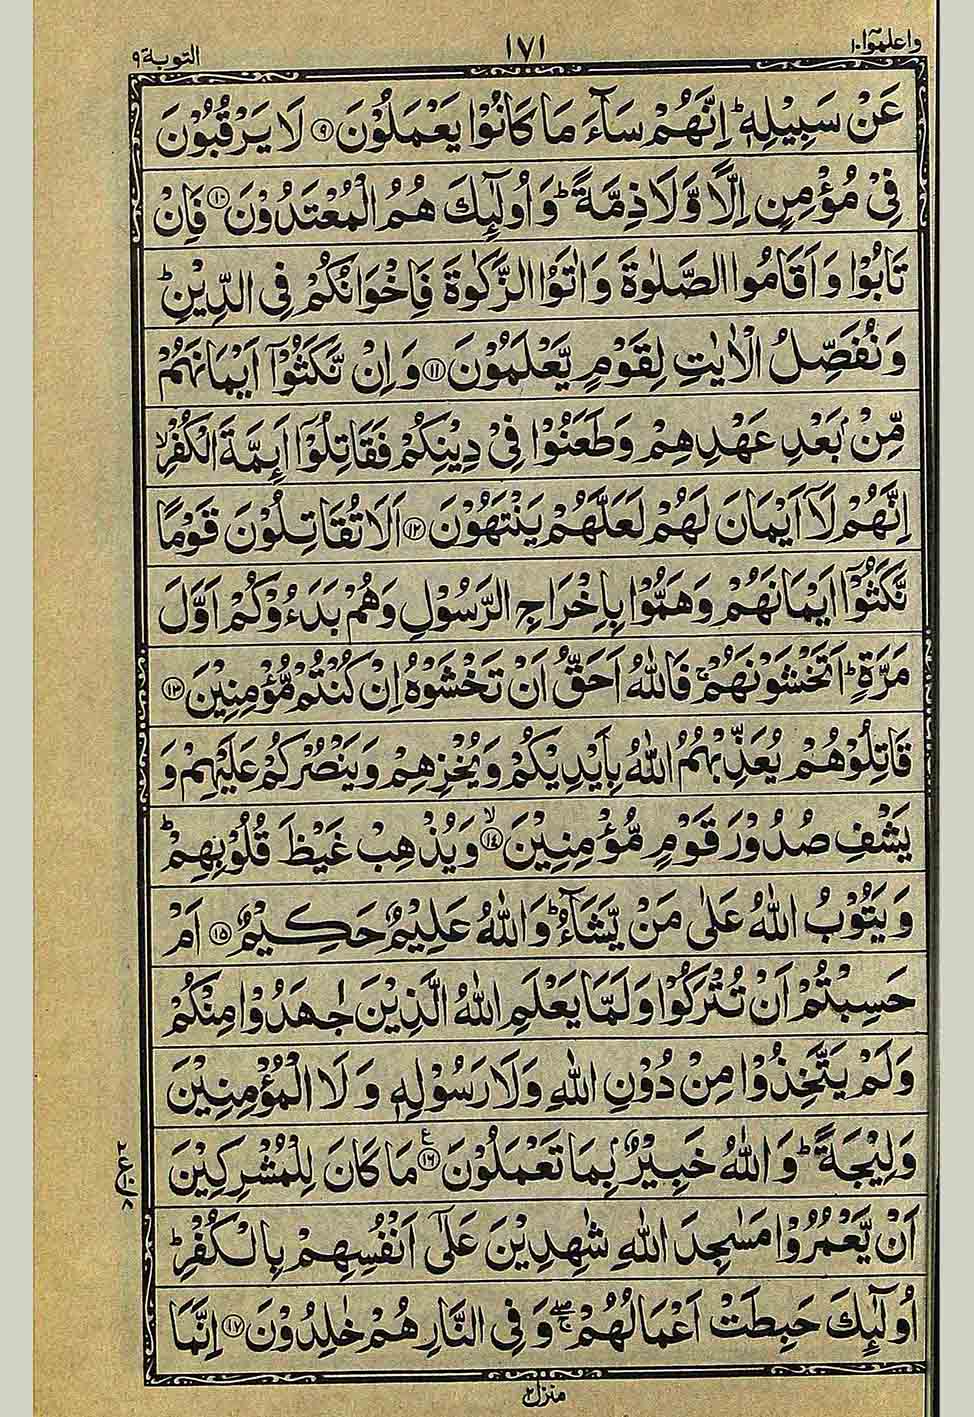 واعلموا ١٠
١٧١
التوبة ٩
عَنْ سَبِيْلِهٖ ؕ اِنَّهُمْ سَآءَ مَا كَانُوْا يَعْمَلُوْنَ ﴿۹﴾ لَا يَرْقُبُوْنَ
فِيْ مُؤْمِنٍ اِلًّا وَّلَا ذِمَّةً ؕ وَاُولٰٓئِكَ هُمُ الْمُعْتَدُوْنَ ﴿۱۰﴾ فَاِنْ
تَابُوْا وَاَقَامُوا الصَّلٰوةَ وَاٰتَوُا الزَّكٰوةَ فَاِخْوَانُكُمْ فِي الدِّيْنِ ؕ
وَنُفَصِّلُ الْاٰيٰتِ لِقَوْمٍ يَّعْلَمُوْنَ ﴿۱۱﴾ وَاِنْ نَّكَثُوْۤا اَيْمَانَهُمْ
مِّنْۢ بَعْدِ عَهْدِهِمْ وَطَعَنُوْا فِيْ دِيْنِكُمْ فَقَاتِلُوْۤا اَئِمَّةَ الْكُفْرِ ۙ
اِنَّهُمْ لَاۤ اَيْمَانَ لَهُمْ لَعَلَّهُمْ يَنْتَهُوْنَ ﴿۱۲﴾ اَلَا تُقَاتِلُوْنَ قَوْمًا
نَّكَثُوْۤا اَيْمَانَهُمْ وَهَمُّوْا بِاِخْرَاجِ الرَّسُوْلِ وَهُمْ بَدَءُوْكُمْ اَوَّلَ
مَرَّةٍ ؕ اَتَخْشَوْنَهُمْ ۚ فَاللّٰهُ اَحَقُّ اَنْ تَخْشَوْهُ اِنْ كُنْتُمْ مُّؤْمِنِيْنَ ﴿۱۳﴾
قَاتِلُوْهُمْ يُعَذِّبْهُمُ اللّٰهُ بِاَيْدِيْكُمْ وَيُخْزِهِمْ وَيَنْصُرْكُمْ عَلَيْهِمْ وَ
يَشْفِ صُدُوْرَ قَوْمٍ مُّؤْمِنِيْنَ ﴿۱۴﴾ ۙ وَيُذْهِبْ غَيْظَ قُلُوْبِهِمْ ؕ
وَيَتُوْبُ اللّٰهُ عَلٰى مَنْ يَّشَآءُ ؕ وَاللّٰهُ عَلِيْمٌ حَكِيْمٌ ﴿۱۵﴾ اَمْ
حَسِبْتُمْ اَنْ تُتْرَكُوْا وَلَمَّا يَعْلَمِ اللّٰهُ الَّذِيْنَ جٰهَدُوْا مِنْكُمْ
وَلَمْ يَتَّخِذُوْا مِنْ دُوْنِ اللّٰهِ وَلَا رَسُوْلِهٖ وَلَا الْمُؤْمِنِيْنَ
وَلِيْجَةً ؕ وَاللّٰهُ خَبِيْرٌۢ بِمَا تَعْمَلُوْنَ ﴿۱۶﴾ ع مَا كَانَ لِلْمُشْرِكِيْنَ
اَنْ يَّعْمُرُوْا مَسٰجِدَ اللّٰهِ شٰهِدِيْنَ عَلٰۤى اَنْفُسِهِمْ بِالْكُفْرِ ؕ
اُولٰٓئِكَ حَبِطَتْ اَعْمَالُهُمْ ۖۚ وَفِي النَّارِ هُمْ خٰلِدُوْنَ ﴿۱۷﴾ اِنَّمَا
٢ ع ١٠ ٨
منزل ٢